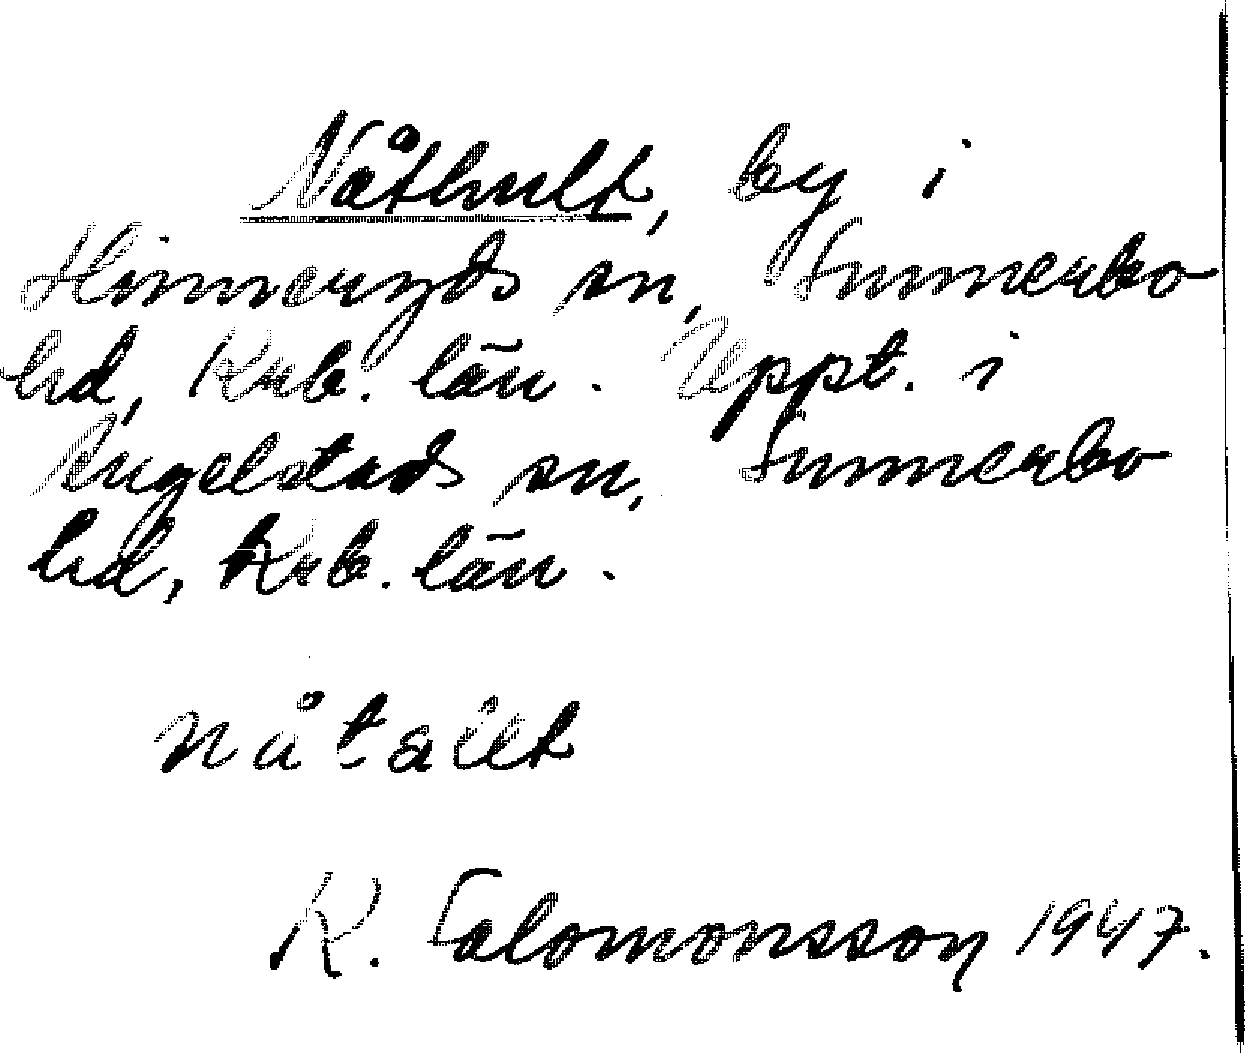 Nåthult, by i
Hinneryds sn, Sunnerbo
hd, Krb. län. Uppt. i
Angelstads sn, Sunnerbo
hd, Krb. län.
nåtalt
K. Salomonsson 1947.